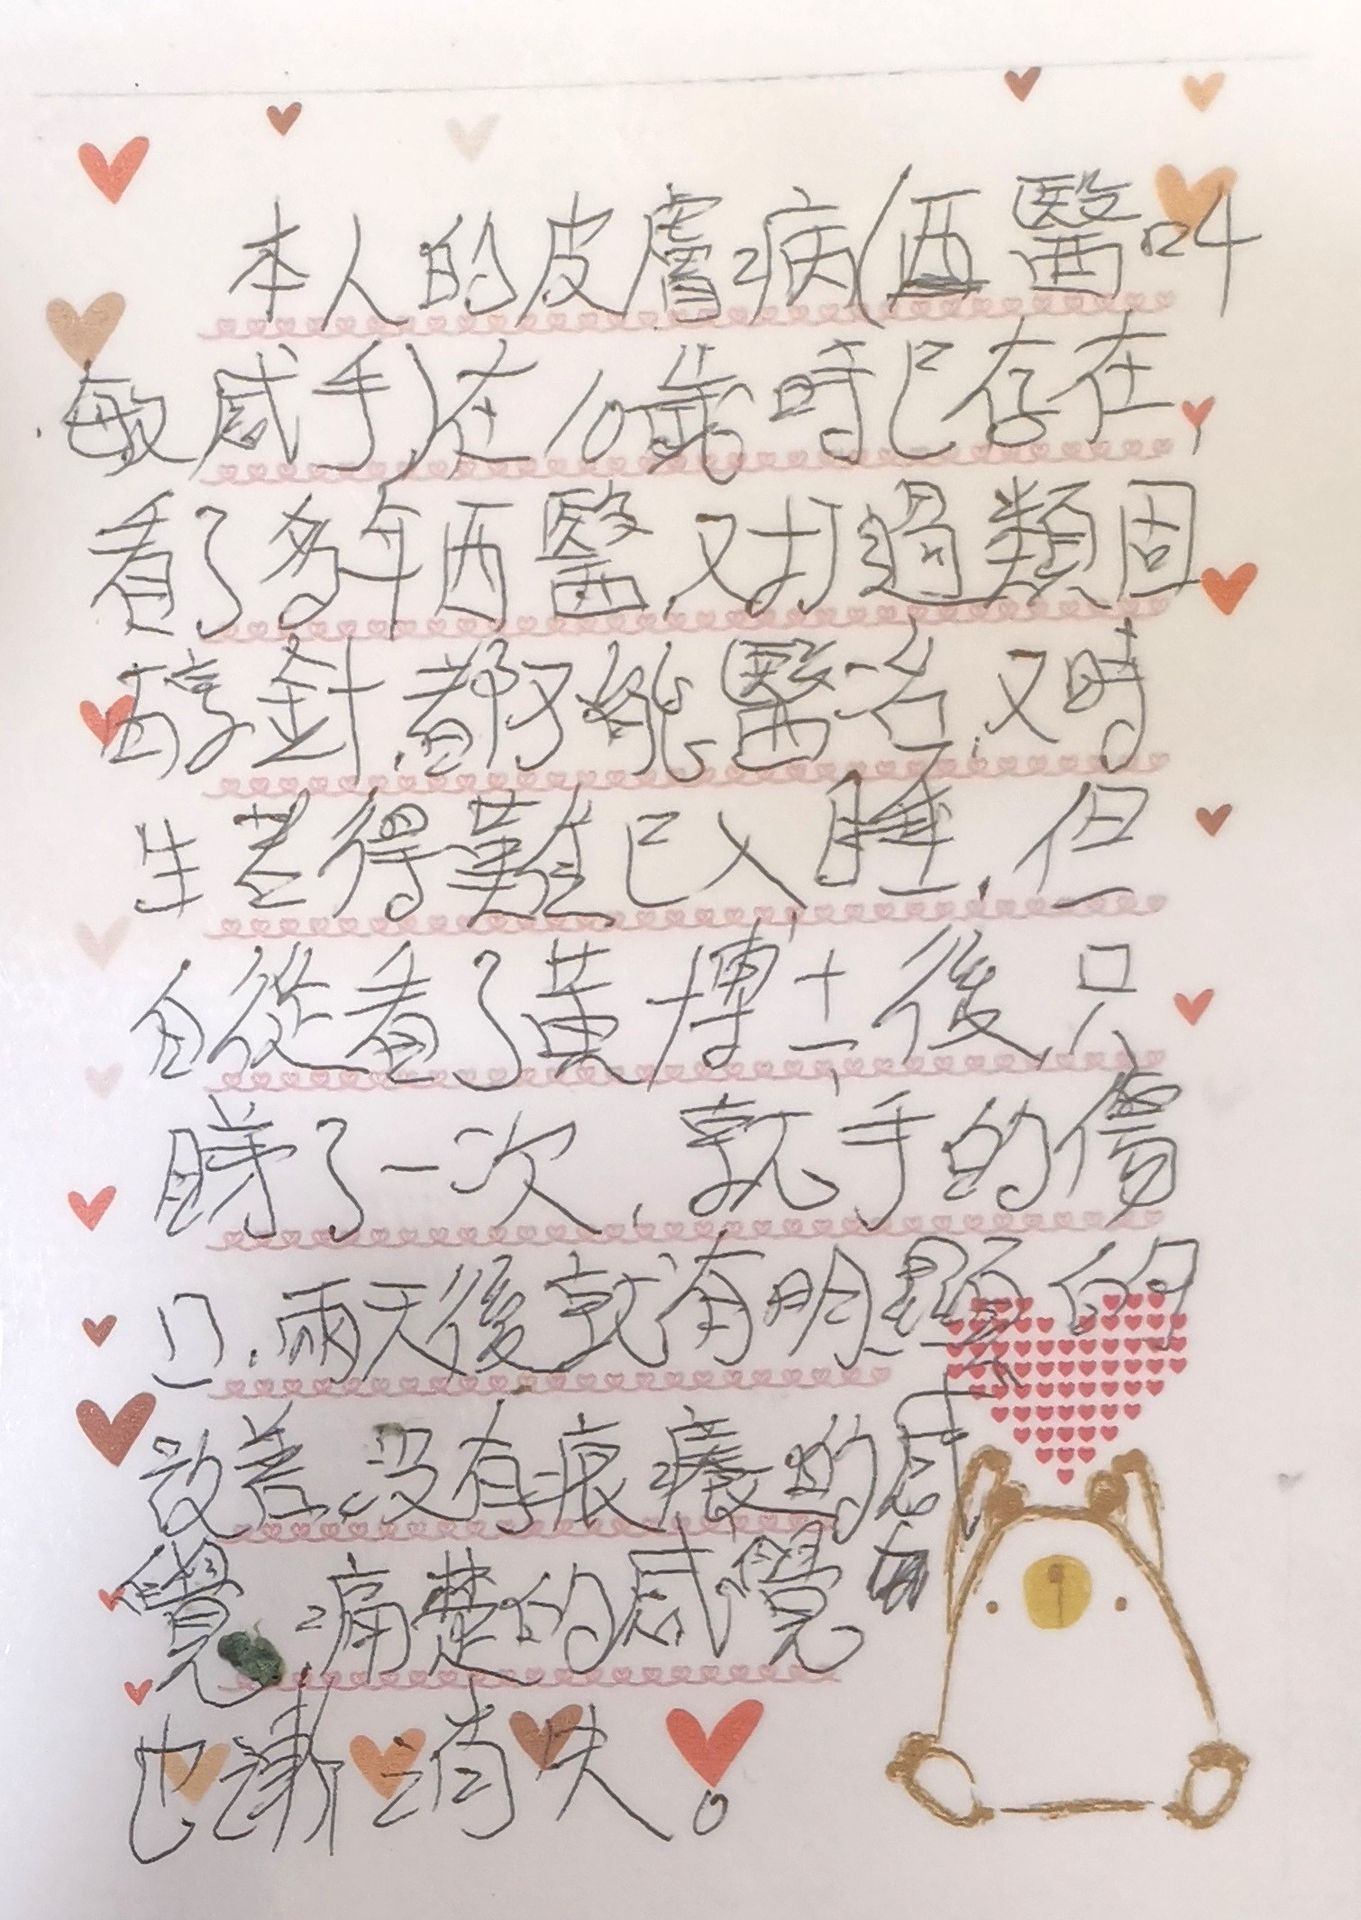 本人的皮膚病(西醫叫
敏感手)在10歲時已存在,
看了多年西醫,又打過類固
醇針,都不能醫治,又時
生差得難已入睡,但
自從看了黃博士後,只
睇了一次,就手的傷
口,兩天後就有明顯的
改善,沒有痕癢的感
覺,痛楚的感覺
也漸消失。